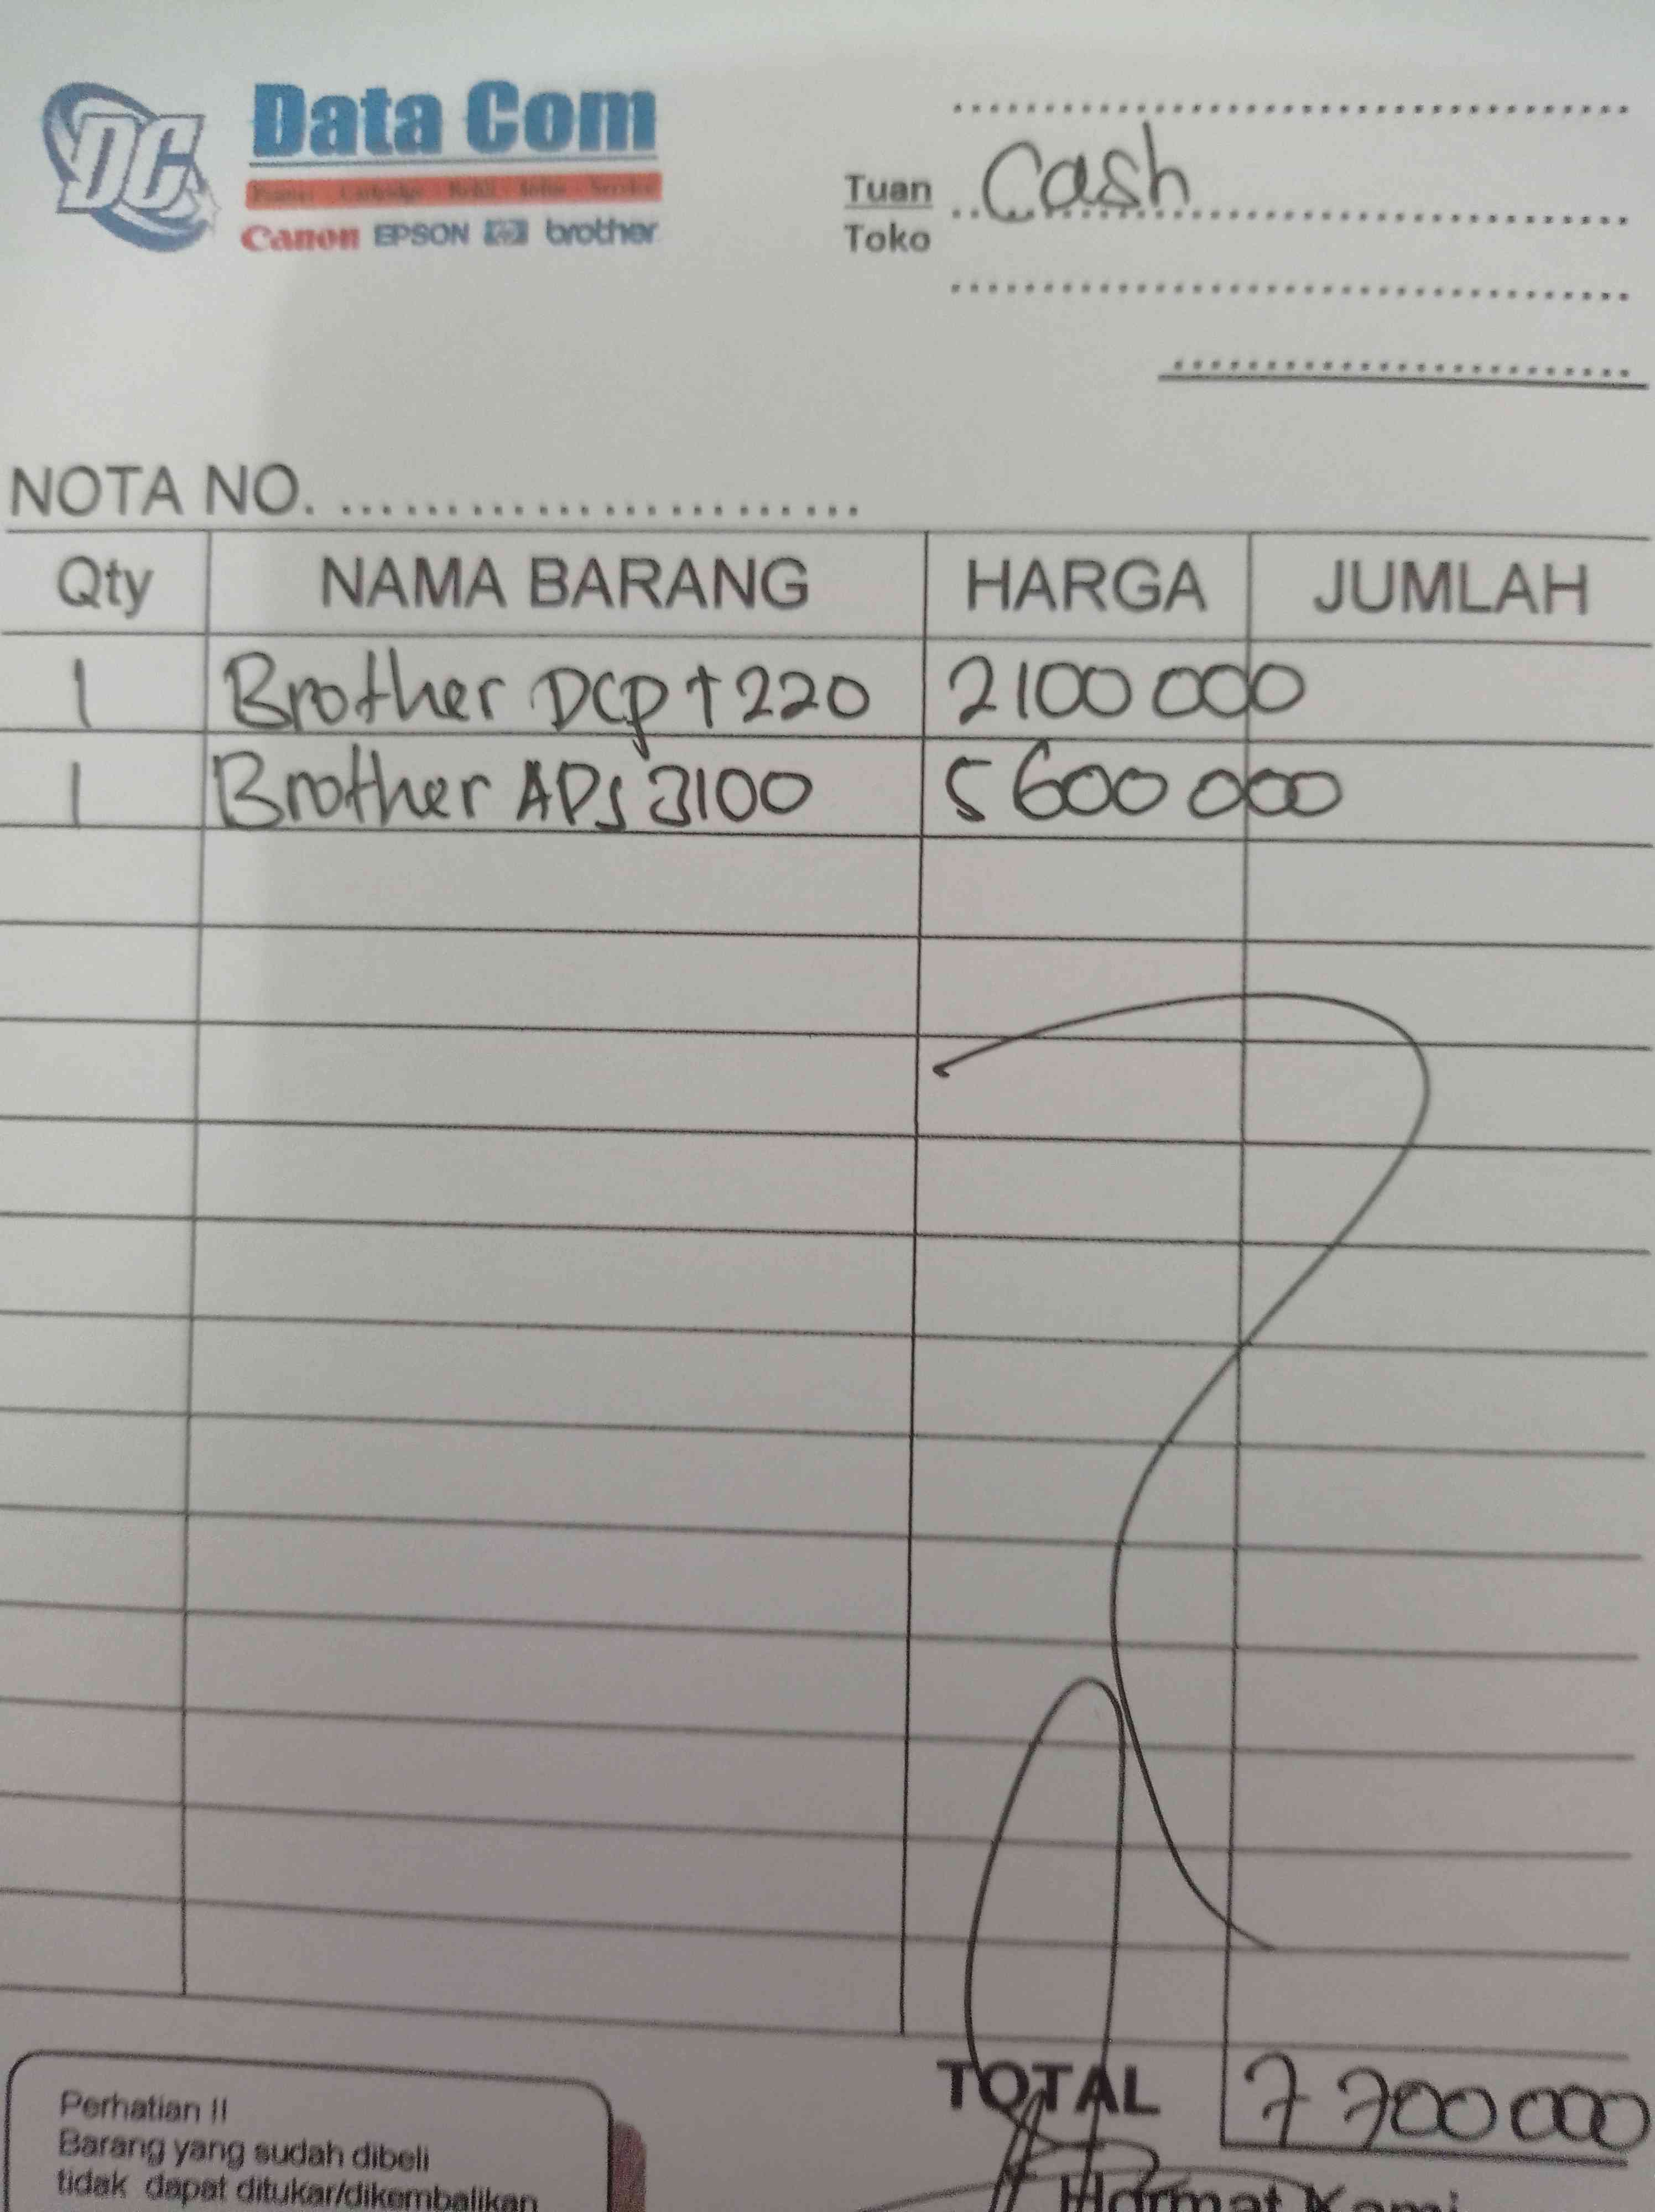 DC Data Com
Canon EPSON hp brother
Tuan Cash
Toko
NOTA NO.
Qty NAMA BARANG HARGA JUMLAH
1 Brother DCP T 220 2100 000
1 Brother ADS 3100 5 600 000
TOTAL 7 700 000
Perhatian !!
Barang yang sudah dibeli
tidak dapat ditukar/dikembalikan
Hormat Kami